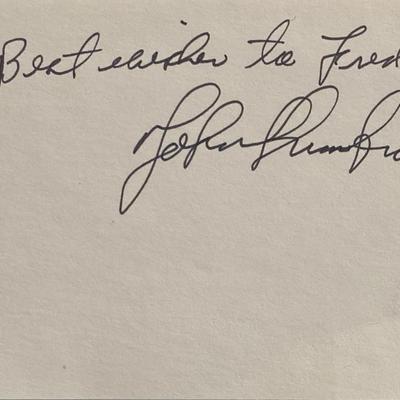 Best wishes to Fred
John